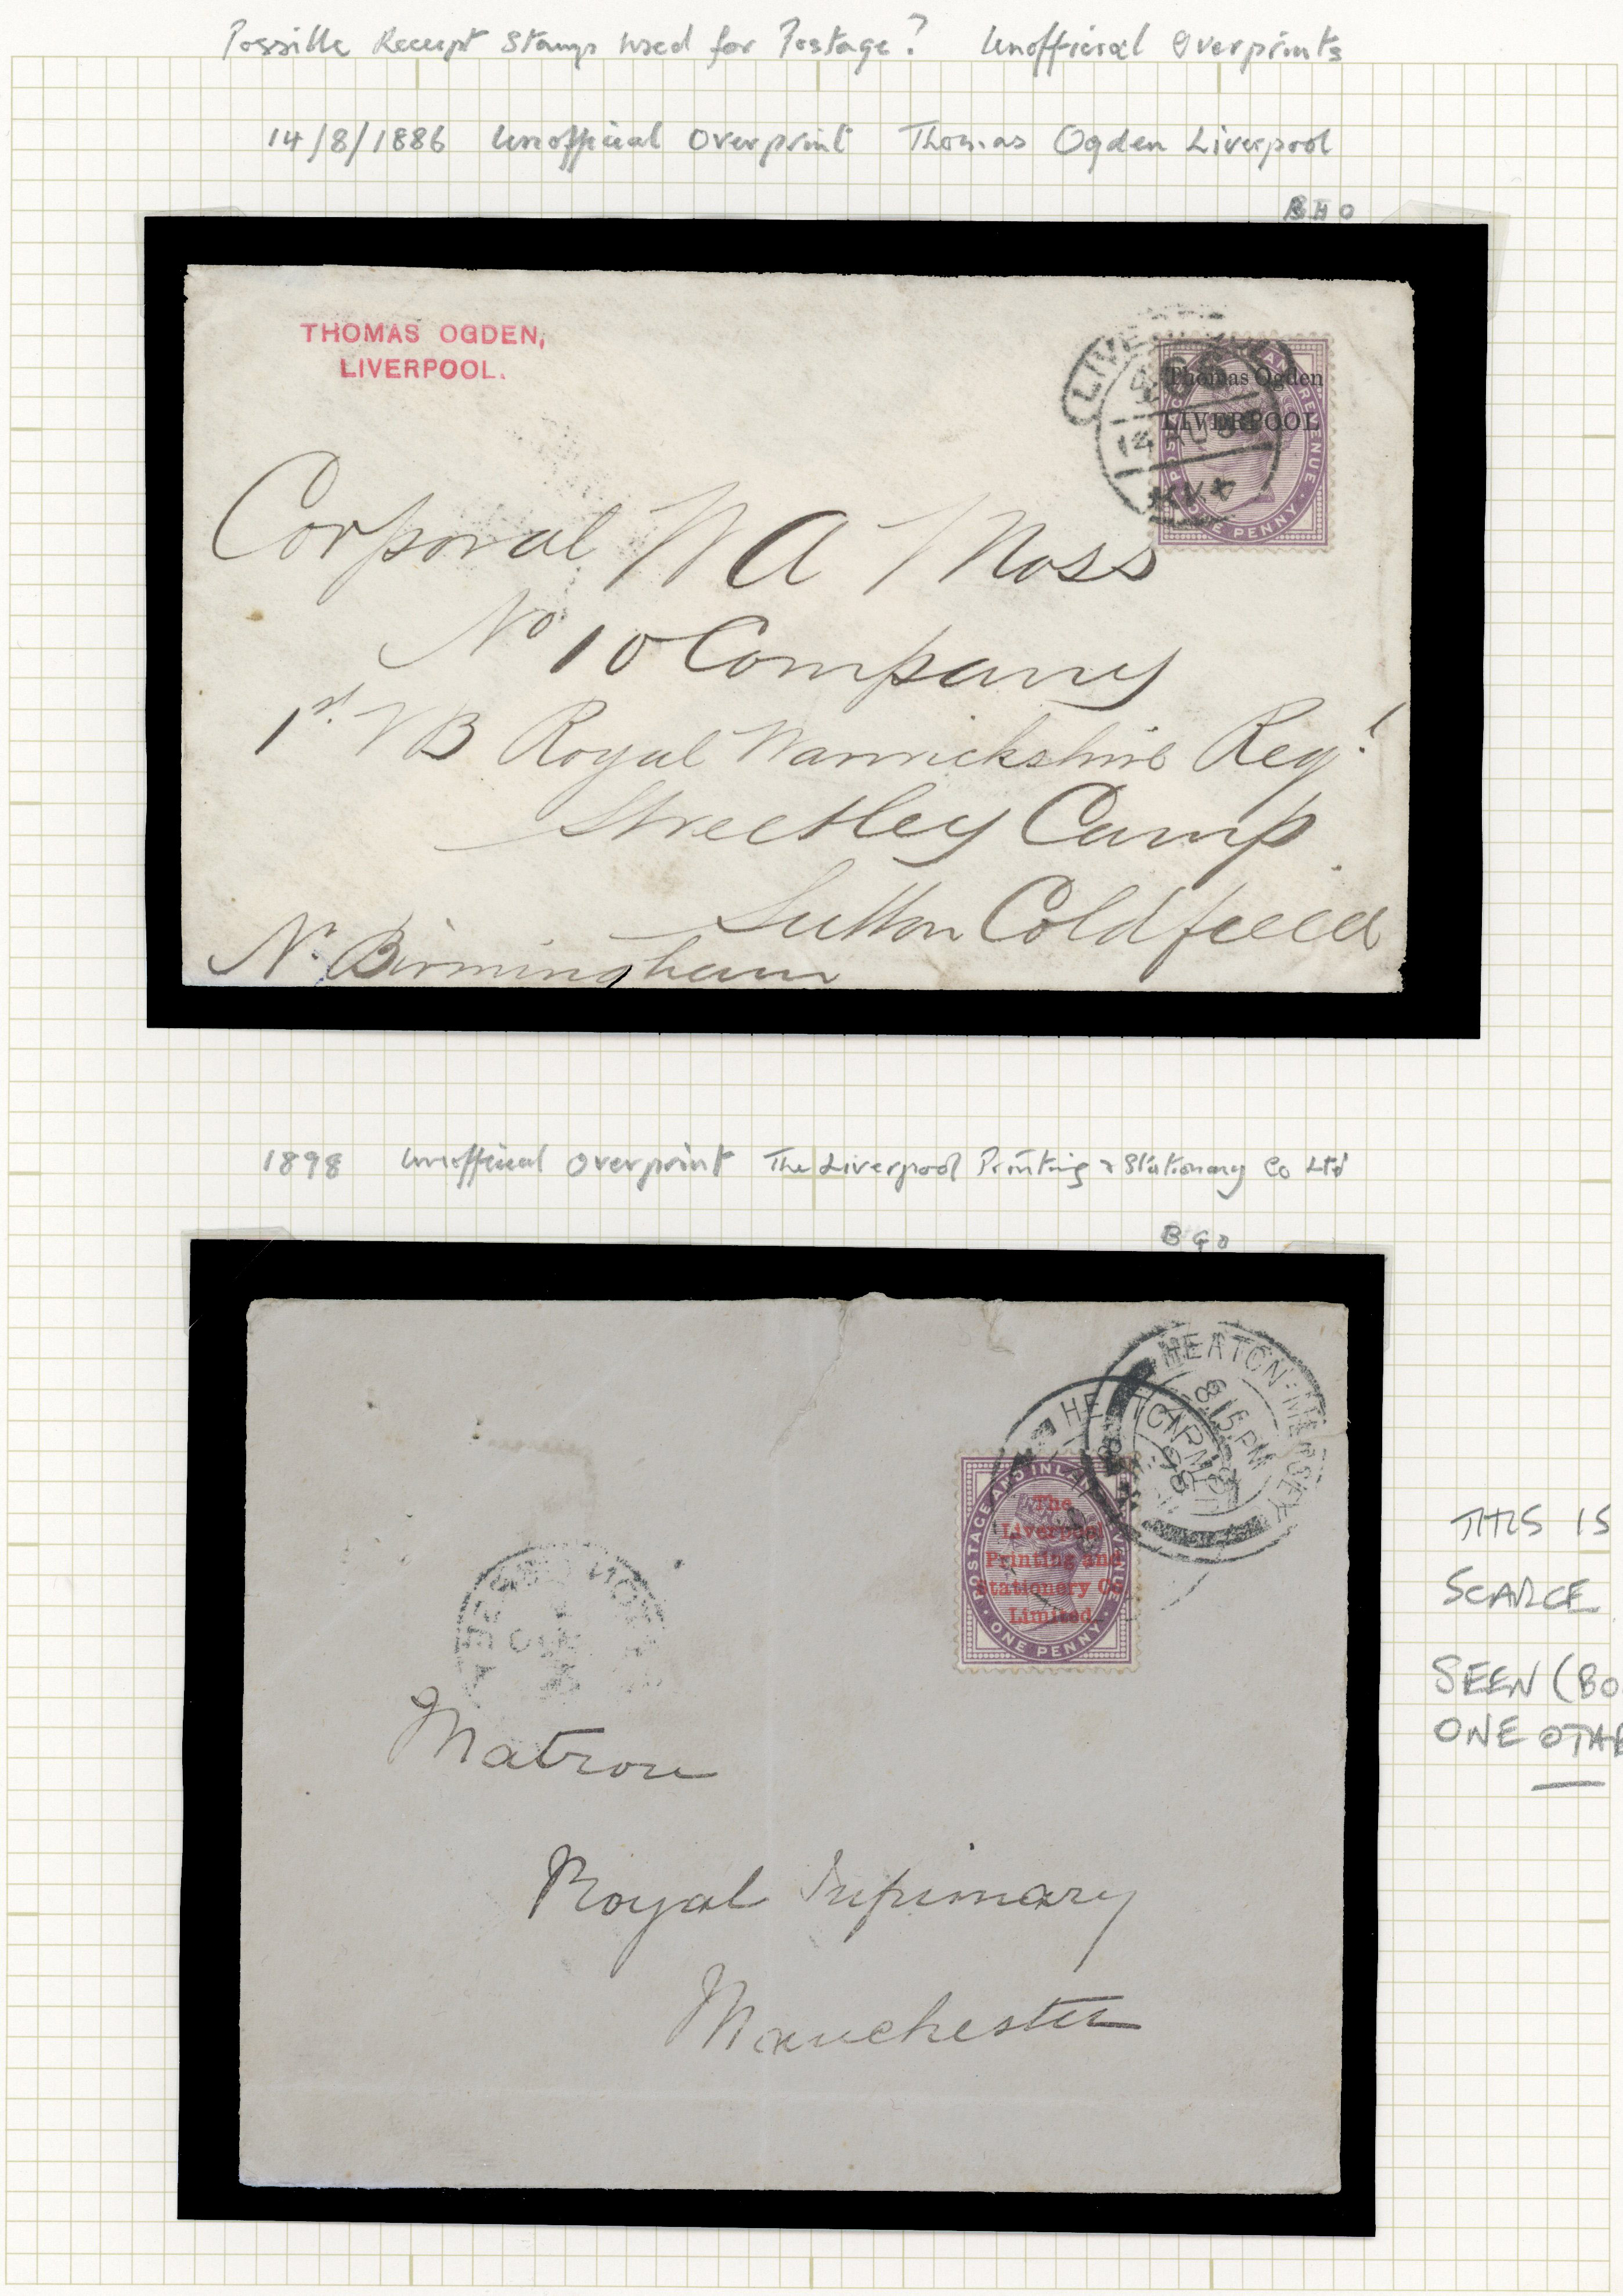 Possible Receipt Stamps used for Postage? Unofficial Overprints
14/8/1886 Unofficial Overprint Thomas Ogden Liverpool
BHO
THOMAS OGDEN,
LIVERPOOL.
Thomas Ogden
LIVERPOOL
ONE PENNY
14
Corporal W A Moss
No 10 Company
1st VB Royal Warwickshire Regt
Streetley Camp
Sutton Coldfield
Nr Birmingham
1898 Unofficial Overprint The Liverpool Printing & Stationary Co Ltd
BGO
HEATON-MERSEY
8.15 PM
98
POSTAGE AND INLAND REVENUE
The
Liverpool
Printing and
Stationery Co
Limited
ONE PENNY
THIS IS
SCARCE
SEEN (BO
ONE OTHE
Matron
Royal Infirmary
Manchester